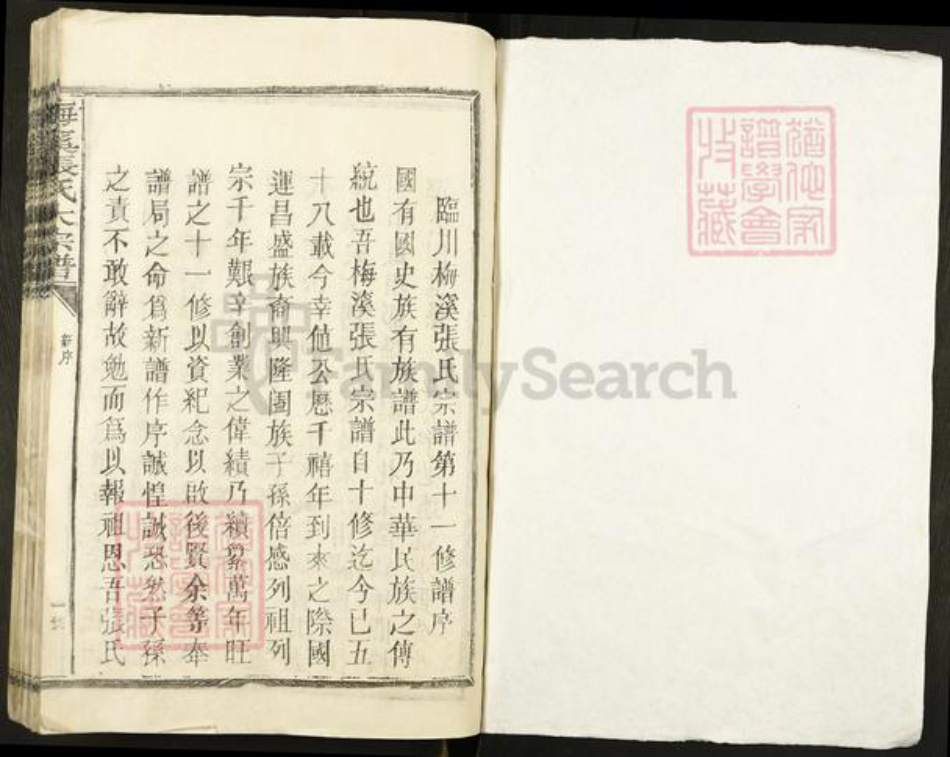 猶他家
譜學會
收藏
臨川梅溪張氏宗譜第十一修譜序
國有國史族有族譜此乃中華民族之傳
統也吾梅溪張氏宗譜自十修迄今已五
十八載今幸値公歷千禧年到來之際國
運昌盛族裔興隆園族子孫倍感列祖列
宗千年艱辛創業之偉績乃續纂萬年旺
譜之十一修以資紀念以啟後賢余等奉
譜局之命爲新譜作序誠惶誠恐然子孫
之責不敢辭故勉而爲以報祖恩吾張氏
梅溪張氏大宗譜
新序
猶他家
譜學會
收藏
FamilySearch